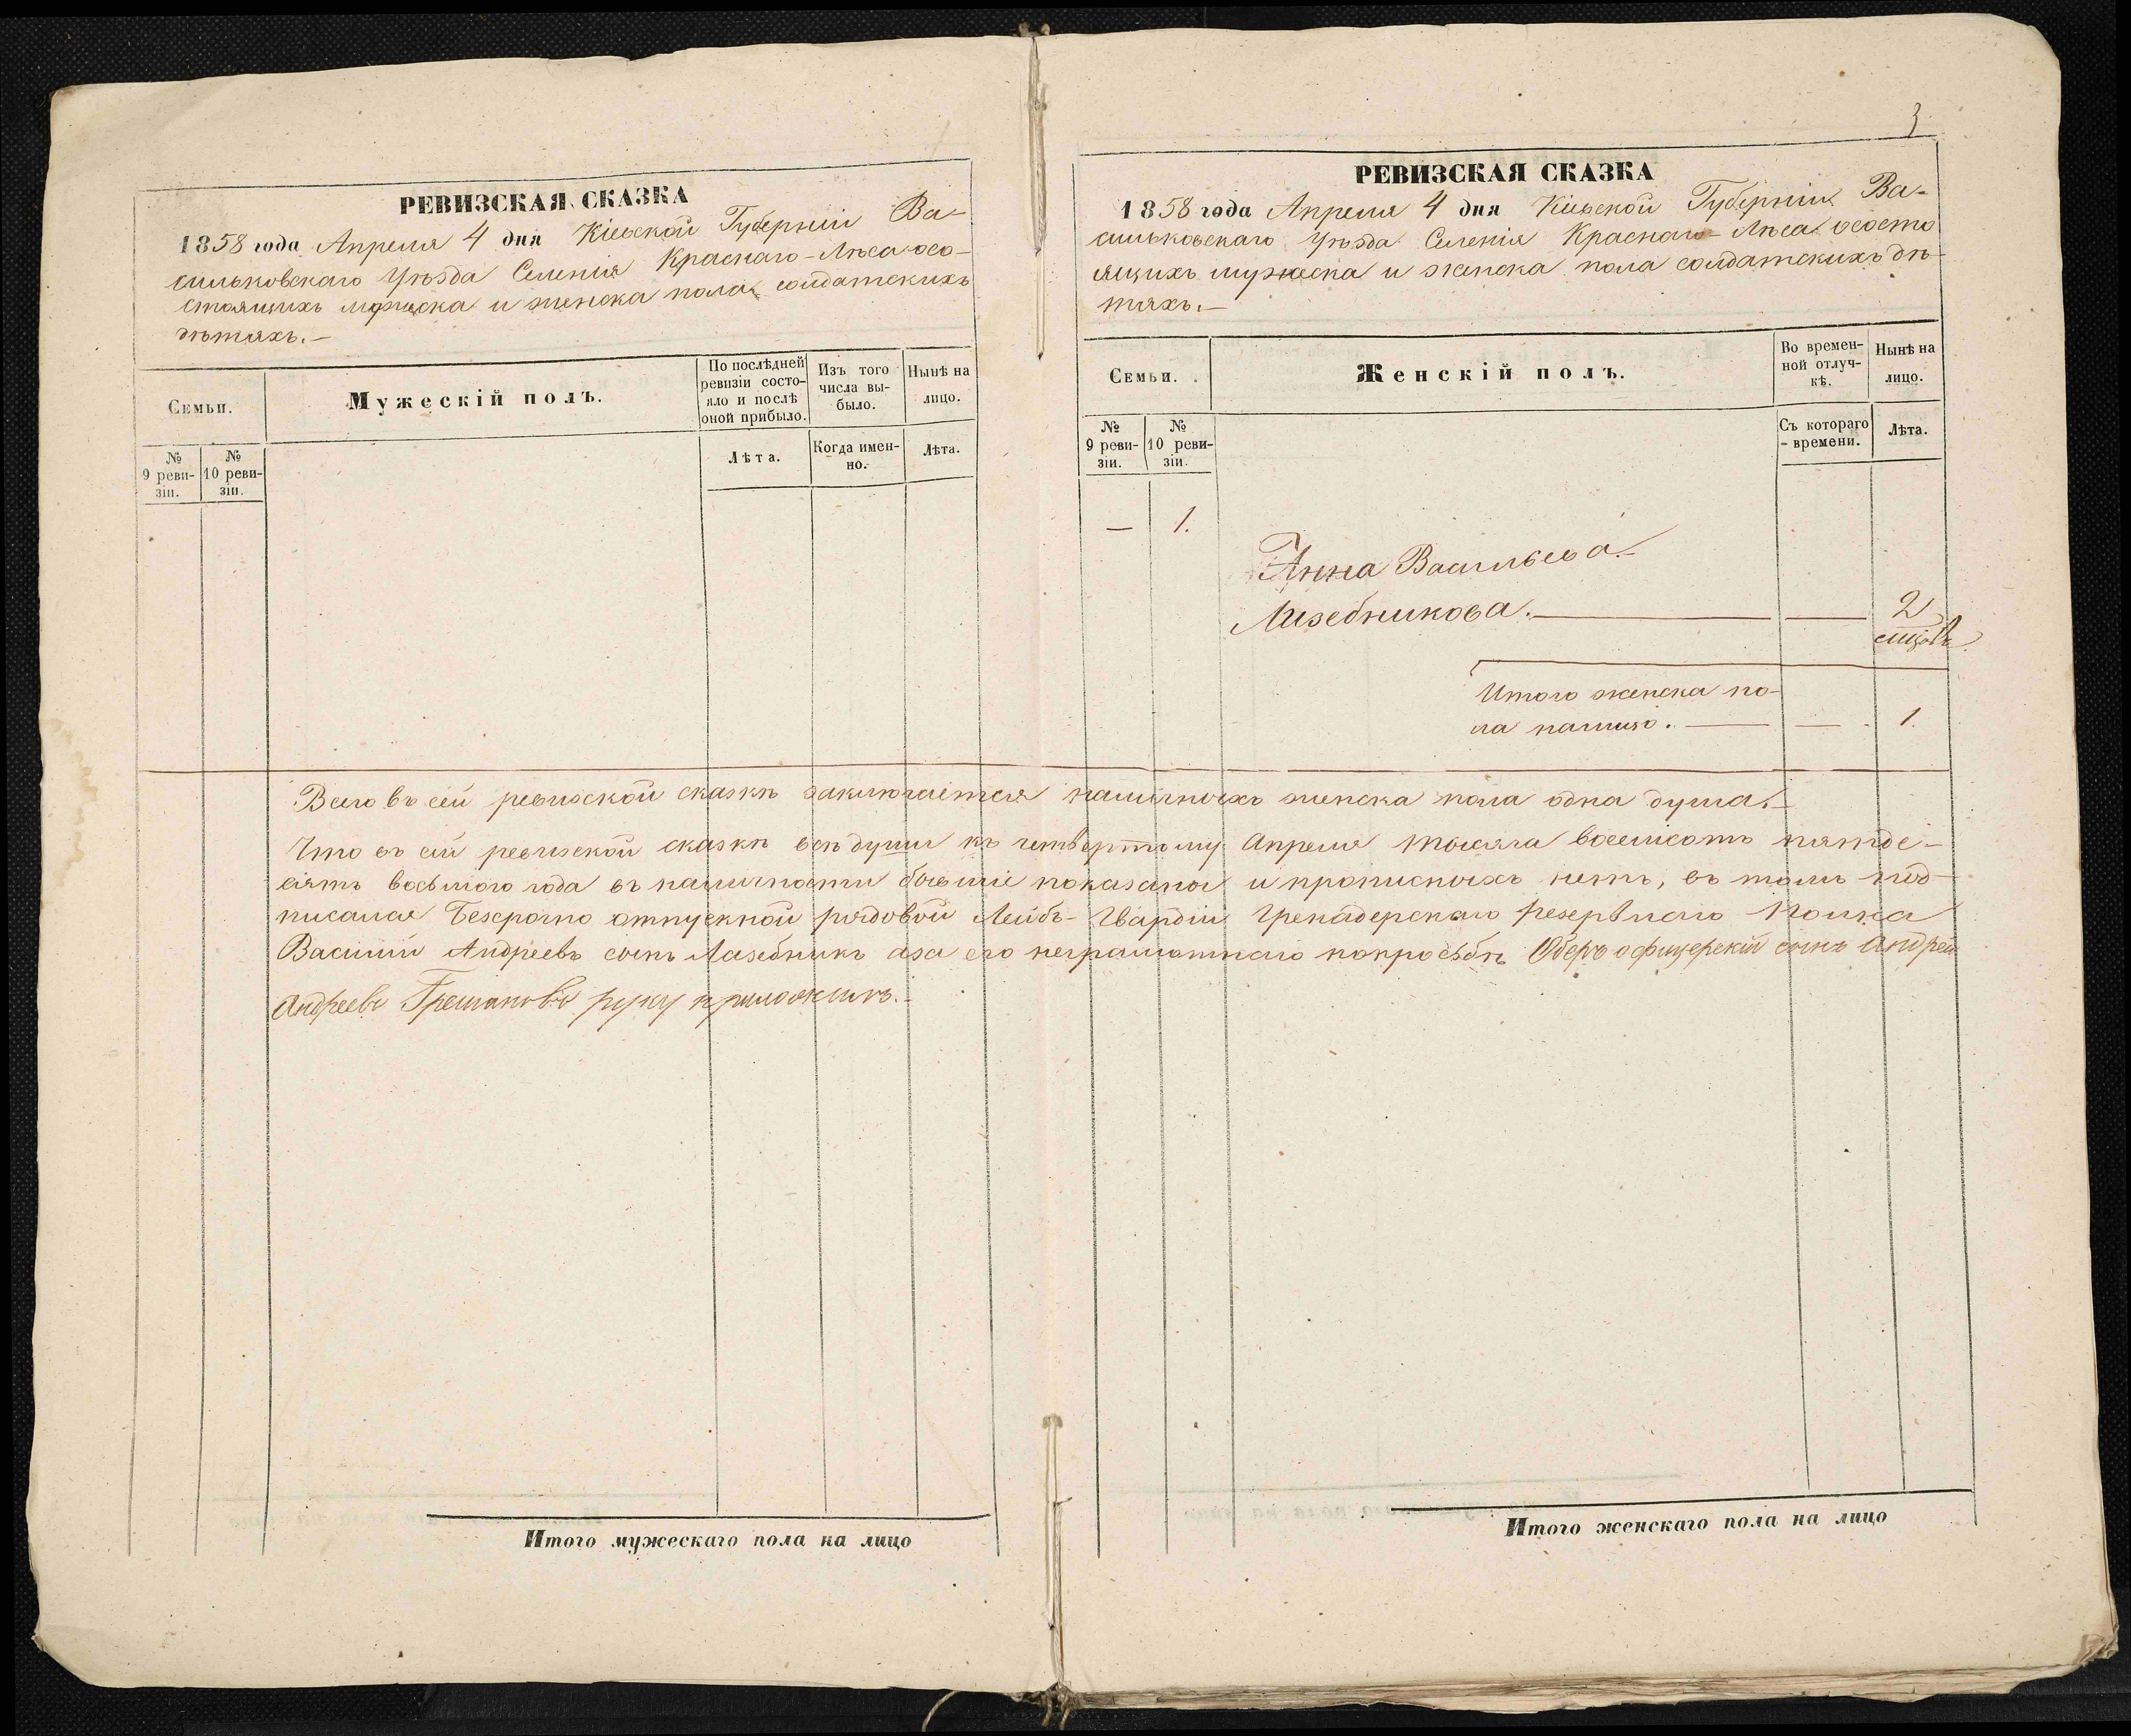 РЕВИЗСКАЯ СКАЗКА
1858 года Апреля 4 дня Кіевской Губерніи Ва-
сильковскаго Уѣзда Селенія Краснаго-Лѣса осо-
стоящихъ мужеска и женска пола солдатскихъ
дѣтяхъ.-
Семьи.
Мужескій полъ.
По послѣдней ревизіи состо-
яло и послѣ
оной прибыло.
Изъ того
числа вы-
было.
Нынѣ на
лицо.
№
9 реви-
зіи.
№
10 реви-
зіи.
Лѣта.
Когда имен-
но.
Лѣта.
3
РЕВИЗСКАЯ СКАЗКА
1858 года Апреля 4 дня Кіевской Губерніи Ва-
сильковскаго Уѣзда Селенія Краснаго-Лѣса осостo
ящихъ мужеска и женска пола солдатскихъ дѣ-
тяхъ.-
Семьи.
Женскій полъ.
Во времен-
ной отлуч-
кѣ.
Нынѣ на
лицо.
№
9 реви-
зіи.
№
10 реви-
зіи.
Съ котораго
времени.
Лѣта.
— 1.
Анна Васильева
Лазебникова. — — 2
Итого женска по-
ла налицо. — — 1.
Всего въ сей ревизской сказкѣ заключается наличныхъ женска пола одна душа.-
Что въ сей ревизской сказкѣ всѣ души къ четвертому Апреля тысяча восемсотъ пятде-
сятъ восьмого года въ наличности бывшіе показаны и прописныхъ нетъ, въ томъ под-
писался Безсрочно отпускной рядовой Лейбъ-Гвардіи Гренадерскаго резервнаго Полка
Василій Андреевъ сынъ Лазебникъ аза его неграмотнаго попросьбѣ Оберъ офицерскій сынъ Андрей
Андреевъ руку приложилъ.-
Итого мужескаго пола на лицо
Итого женскаго пола на лицо